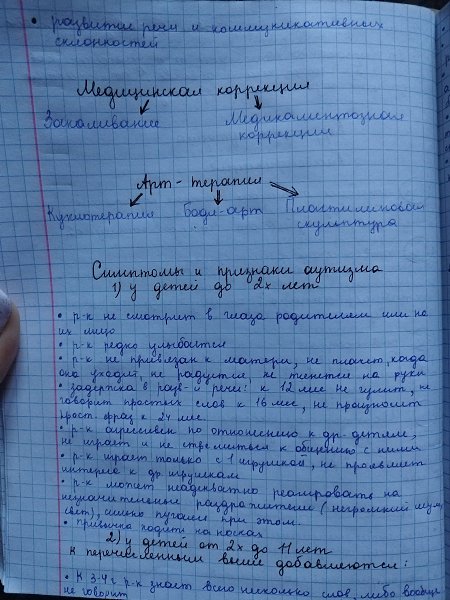 • развитие речи и коммуникативных
склонностей
Медицинская коррекция
Закаливание Медикаментозная
коррекция
Арт-терапия
Куклотерапия Боди-арт Пластилиновая
скульптура
Симптомы и признаки аутизма
1) у детей до 2х лет
• р-к не смотрит в глаза родителям или на
их лицо
• р-к редко улыбается
• р-к не привязан к матери, не плачет, когда
она уходит, не радуется, не тянется на руки
• задержка в разв-и речи: к 12 мес не гулит, не
говорит простых слов к 16 мес, не произносит
прост. фраз к 24 мес.
• р-к агрессивен по отношению к др. детям,
не играет и не стремиться к общению с ними
• р-к играет только с 1 игрушкой, не проявляет
интерес к др игрушкам
• р-к может неадекватно реагировать на
незначительные раздражители (негромкий шум,
свет), сильно пугаясь при этом.
• привычка ходить на носках
2) у детей от 2х до 11 лет
к перечисленным выше добавляются:
• К 3-4 г р-к знает всего несколько слов, либо вообще
не говорит